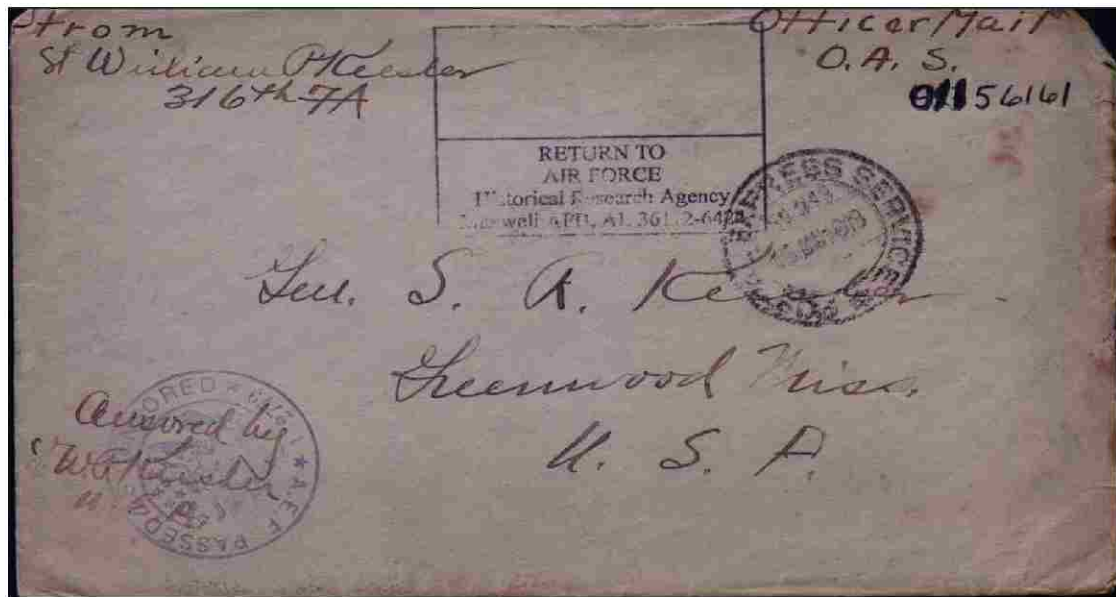 From
Lt William P Keesler
316th FA
Officer Mail
O. A. S.
01156161
RETURN TO
AIR FORCE
Historical Research Agency
Maxwell AFB, AL 36112-6424
EXPRESS SERVICE
S. A. Keesler
Greenwood Miss.
U. S. A.
Censored by
PASSED
CENSORED
A.E.F.